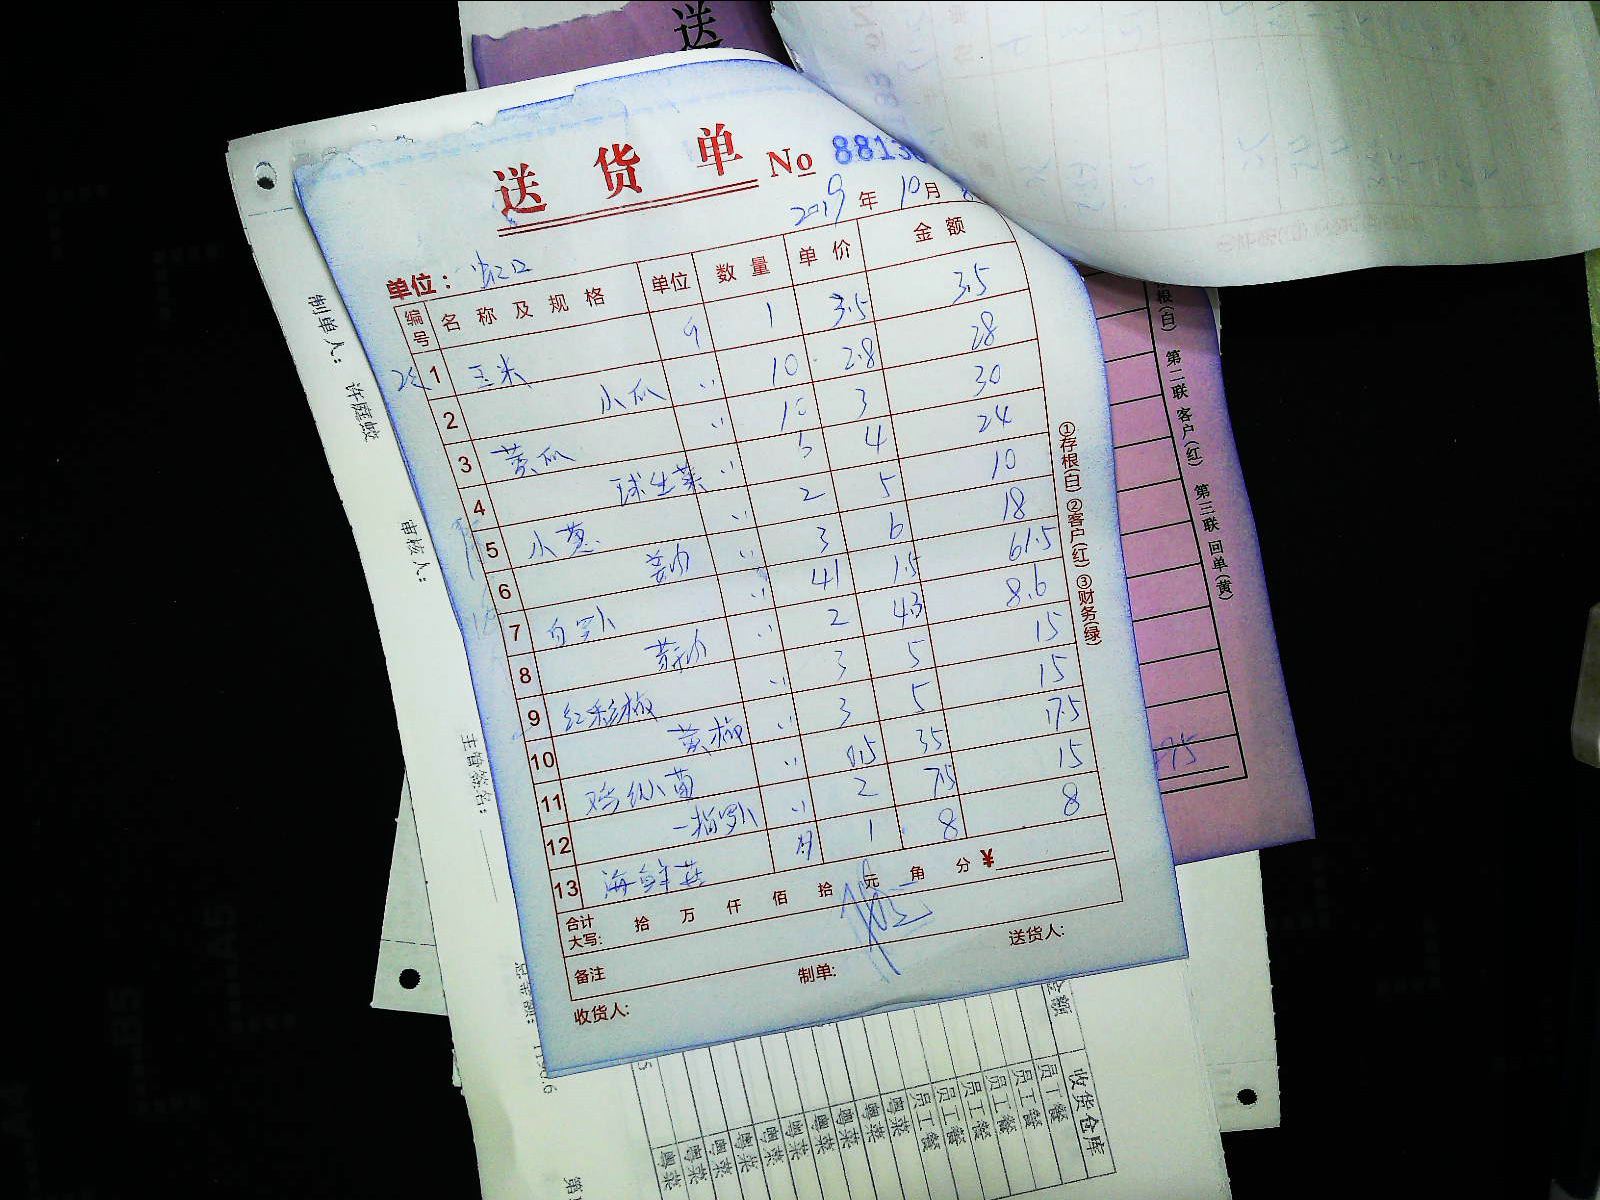 送
送 货 单 No 8813
2019 年 10 月
单位: 虹口
编号 名 称 及 规 格 单位 数 量 单 价 金 额
1 玉米 斤 1 3.5 3.5
2 小瓜 〃 10 2.8 28
3 黄瓜 〃 10 3 30
4 球生菜 〃 5 4 24
5 小葱 〃 2 5 10
6 〃 3 6 18
7 白罗卜 〃 41 1.5 61.5
8 〃 2 4.3 8.6
9 红彩椒 〃 3 5 15
10 黄椒 〃 3 5 15
11 鸡纵菌 〃 0.5 35 17.5
12 一指罗卜 〃 2 7.5 15
13 海鲜菇 1 8 8
合计大写: 拾 万 仟 佰 拾 元 角 分 ¥
备注
收货人: 制单: 送货人:
①存根(白) ②客户(红) ③财务(绿)
根(白) 第二联 客户(红) 第三联 回单(黄)
制单人:
审核人:
主管签名:
收货仓库
员工餐
员工餐
员工餐
员工餐
员工餐
员工餐
粤菜
粤菜
粤菜
粤菜
粤菜
粤菜
粤菜
粤菜
粤菜